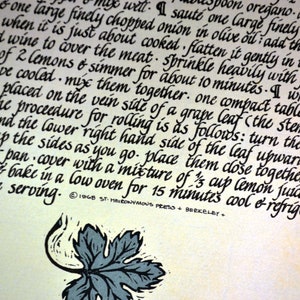 & mix well · ¶ sauté one large finely
one large finely chopped onion in olive oil : add th
when it is just about cooked · flatten it gently in t
d wine to cover the meat · sprinkle heavily with
of 2 lemons & simmer for about 10 minutes · ¶ w
ve cooled · mix them together · one compact table
placed on the vein side of a grape leaf (the ste
he proceedure for rolling is as follows : turn the
nd the lower right hand side of the leaf upward
up the sides as you go · place them close togethe
pan · cover with a mixture of ⅓ cup lemon juice
& bake in a low oven for 15 minutes cool & refrig
e serving.
© 1968 ST· HEIRONYMOUS PRESS · BERKELEY ·